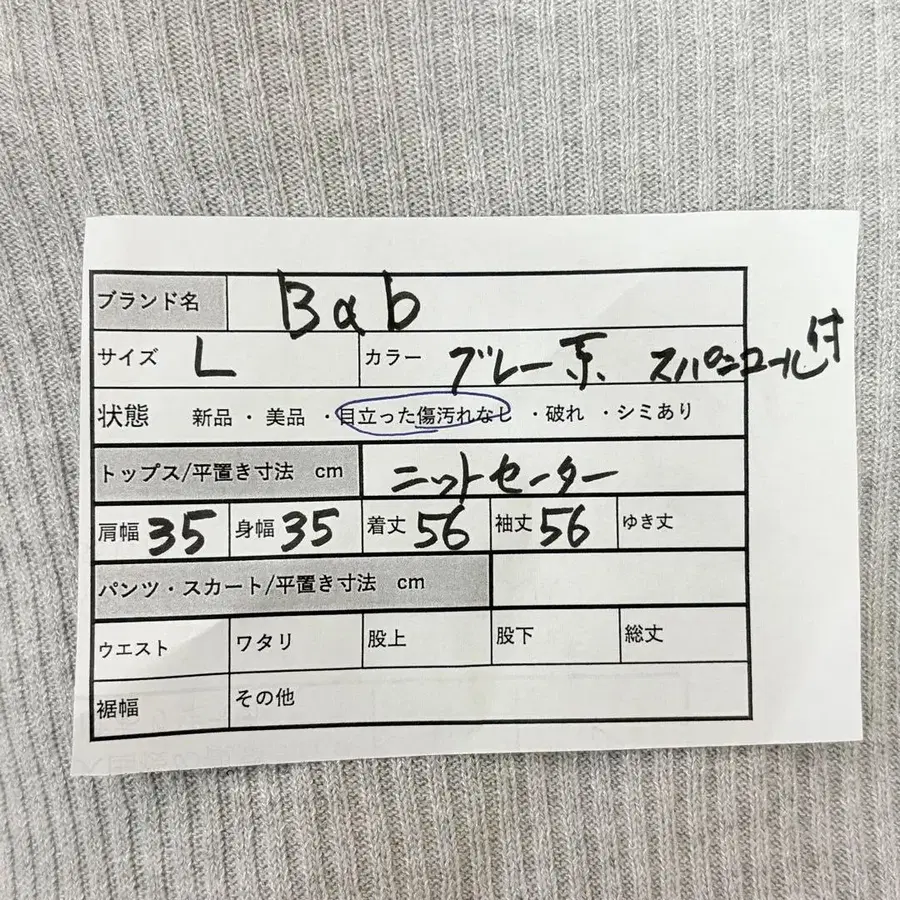 ブランド名 Bab
サイズ L カラー グレー系 スパンコール付
状態 新品 ・ 美品 ・目立った傷汚れなし ・破れ ・シミあり
トップス/平置き寸法 cm ニットセーター
肩幅 35 身幅 35 着丈 56 袖丈 56 ゆき丈
パンツ・スカート/平置き寸法 cm
ウエスト ワタリ 股上 股下 総丈
裾幅 その他